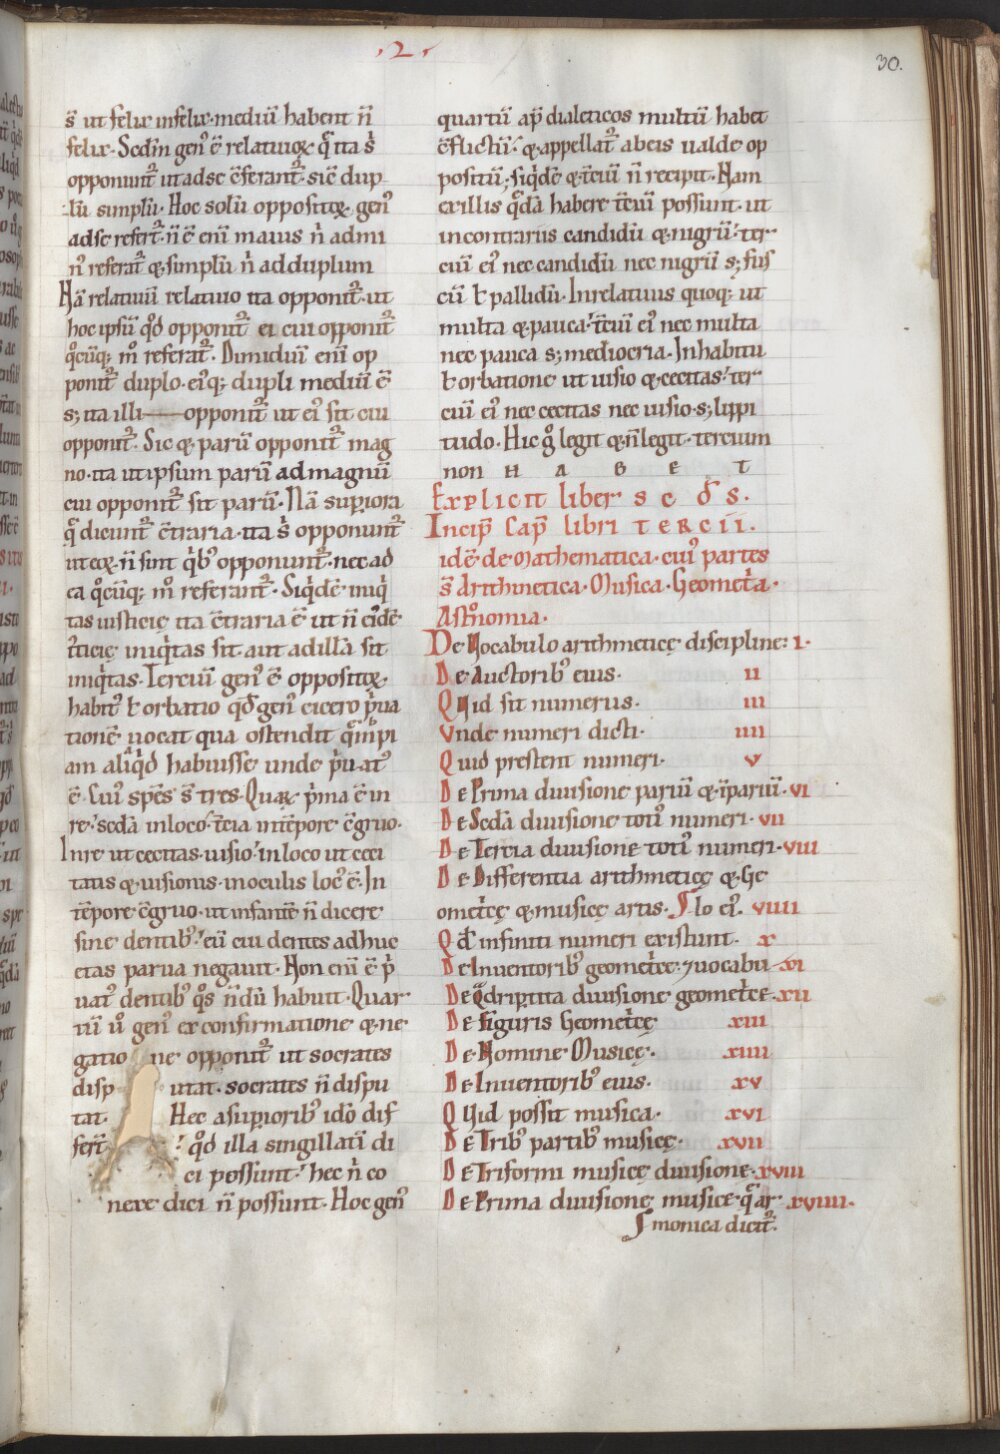 .2.
30.
s̄ ut felix infelix. mediū habent n̄
felix. Sedm̄ gen᷒ ē relatiuoꝝ q̄ ita s̄
opponunt᷑ ut ad se c̄ferant᷑. sic̄ dup
lū simplū. Hoc solū oppositoꝝ gen᷒
ad se refert᷑. n̄ ē eni maius n̄ ad mi
n᷒ referat᷑ & simplū n̄ ad duplum
Nā relatiuū relatiuo ita opponit᷑. ut
hoc ipsū qd̄ opponit᷑ ei cui opponit᷑
qͦcūq; mͦ referat᷑. Dimidiū eni op
ponit᷑ duplo. ei᷒q; dupli mediū ē
s; ita illi opponit᷑ ut ei᷒ sit cui
opponit᷑. Sic & parū opponit᷑ mag
no. ita ut ipsum parū ad magnū
cui opponit᷑ sit parū. Nā supiora
q̄ dicunt᷑ c̄traria. ita s̄ opponunt᷑
ut eoꝝ n̄ sint qͥb᷒ opponunt᷑. nec ad
ea qͦcūq; mͦ referant᷑. Siqͥdē iniqͥ
tas iusticie ita c̄traria ē ut n̄ ei᷒dē
iusticię iniqͥtas sit aut ad illā sit
iniqͥtas. Terciū gen᷒ ē oppositoꝝ.
habit᷒ ł orbatio qd̄ gen᷒ cicero pͥua
tionē uocat qua ostendit quēpi
am aliqͥd habuisse unde pͥuat᷒
ē. Cui᷒ sp̄es s̄ tres. Quaꝝ pͥma ē in
re. sc̄da in loco. t̄cia in tēpore c̄gruo.
In re ut cecitas. uisio. in loco ut ceci
tatis & uisionis. in oculis loc᷒ ē. In
tēpore c̄gruo. ut infantē n̄ dicere
sine dentib᷒. eū cui dentes adhuc
etas parua negauit. Non eni ē pͥ
uat᷒ dentib᷒ qͦs n̄dū habuit. Quar
tū uͦ gen᷒ ex confirmatione & ne
gatione opponit᷑ ut socrates
disputat. socrates n̄ dispu
tat. Hec a supiorib᷒ idͦ dif
fert᷑ qd̄ illa singillatī di
ci possunt. hec n̄ co
nexe dici n̄ possunt. Hoc gen᷒
quartū ap̄ dialeticos multū habet
c̄flictū. & appellat᷑ ab eis ualde op
positū. siqͥdē & t̄ciū n̄ recipit. Nam
ex illis qͥdā habere t̄ciū possunt. ut
in contrariis candidū & nigrū. ter
ciū ei᷒ nec candidū nec nigrū s; fus
cū ł pallidū. In relatiuis quoq; ut
multa & pauca. t̄ciū ei᷒ nec multa
nec pauca s; mediocria. In habitu
ł orbatione ut uisio & cecitas. ter
ciū ei᷒ nec cecitas nec uisio. s; lippi
tudo. Hic gͦ legit & n̄ legit. tercium
non H A B E T
Explicit liber s c d̄ s.
Incip̄ Cap̄ libri T E R C I I.
idē de Mathematica. cui᷒ partes
s̄ Arithmetica. Musica. Geomet̄a.
Ast̄nomia.
De Vocabulo arithmeticę discipline. I.
De Auctorib᷒ eius. II
Quid sit numerus. III
Vnde numeri dicti. IIII
Quid prestent numeri. V
De Prima diuisione pariū & ip̄ariū. VI
De Sc̄da diuisione toti᷒ numeri. VII
De Tercia diuisione toti᷒ numeri. VIII
De Differentia arithmetice & ge
omet̄cę & musicę artis. lo ei᷒. VIIII
Qd̄ infiniti numeri existunt. X
De Inuentorib᷒ geomet̄cę. ⁊ uocabu XI
De Qͣdripartita diuisione geomet̄ce. XII
De Figuris Geomet̄cę XIII
De Nomine Musicę. XIIII
De Inuentorib᷒ eius. XV
Quid possit musica. XVI
De Trib᷒ partib᷒ musicę. XVII
De Triformi musicę diuisione. XVIII
De Prima diuisione musice. q̄ ar XVIIII.
monica dicit᷑.